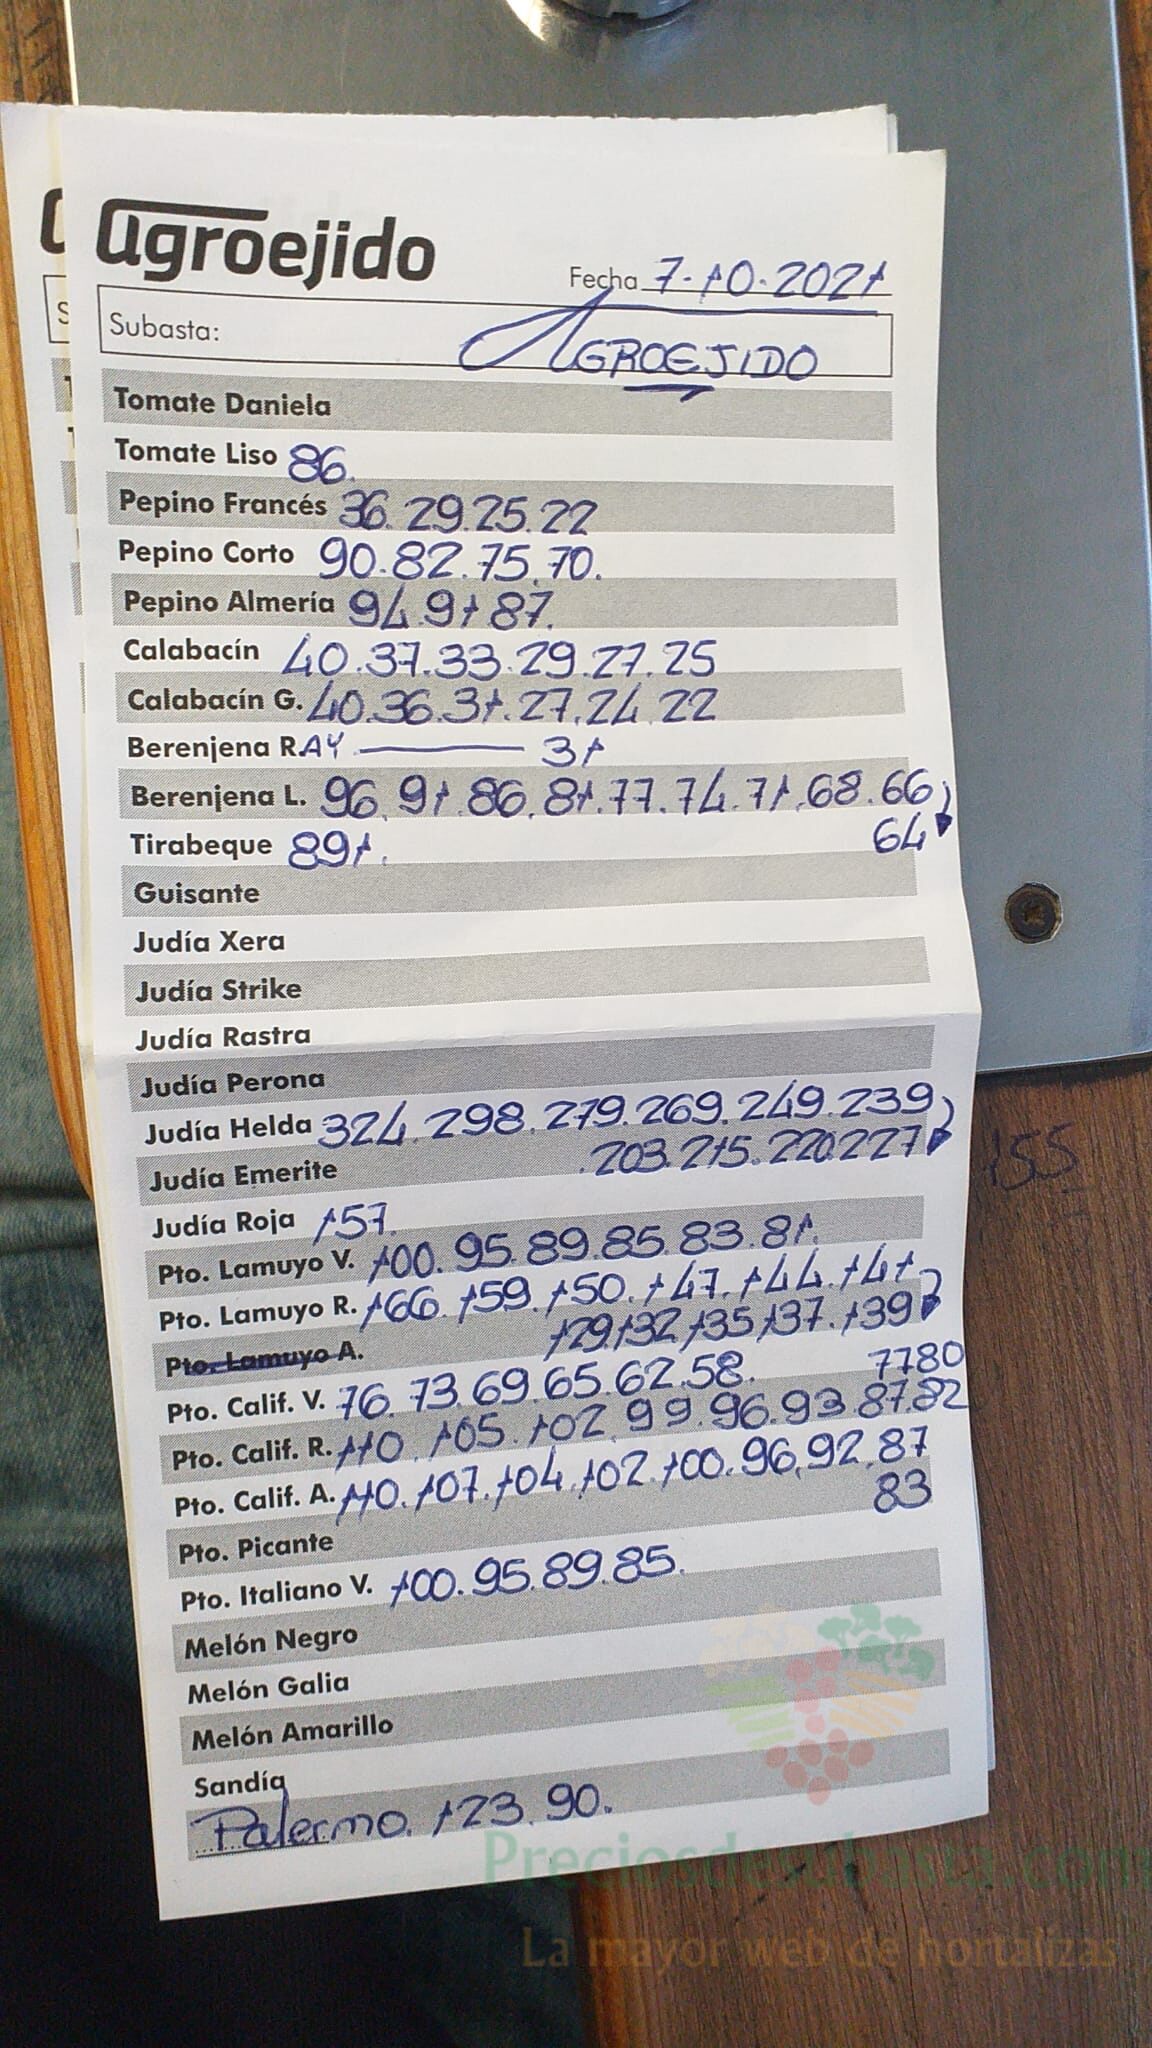 agroejido
Fecha 7-10-2021
Subasta: AGROEJIDO
Tomate Daniela
Tomate Liso 86.
Pepino Francés 36.29.25.22
Pepino Corto 90.82.75.70.
Pepino Almería 94.91 87.
Calabacín 40.37.33.29.27.25
Calabacín G. 40.36.31.27.24.22
Berenjena R.AY — 31
Berenjena L. 96.91.86.81.77.74.71.68.66
64
Tirabeque 891.
Guisante
Judía Xera
Judía Strike
Judía Rastra
Judía Perona
Judía Helda 324.298.279.269.249.239
Judía Emerite .203.215.220.227
155
Judía Roja 157.
Pto. Lamuyo V. 100.95.89.85.83.81.
Pto. Lamuyo R. 166.159.150.147.144.141
Pto. Lamuyo A. 129.132 135 137.139
Pto. Calif. V. 76.73.69.65.62.58. 7780
Pto. Calif. R. 110.105.102.99.96.93.87.82
Pto. Calif. A. 110.107.104.102.100.96.92.87
83
Pto. Picante
Pto. Italiano V. 100.95.89.85.
Melón Negro
Melón Galia
Melón Amarillo
Sandía
Palermo. 123.90.
Preciosdesubasta.com
La mayor web de hortalizas